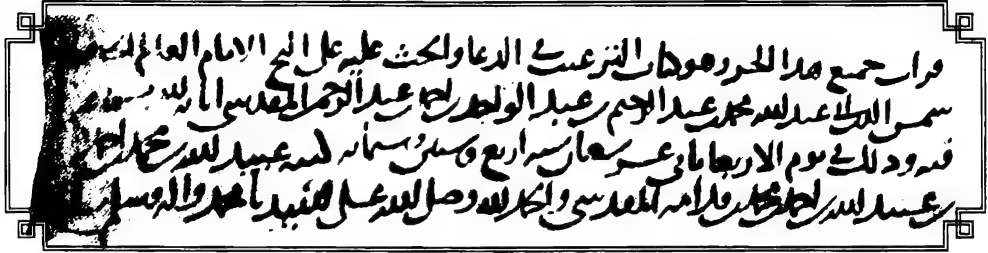 قرأت جميع هذا الجزء وهو كتاب الترغيب في الدعا والحث عليه على الشيخ الامام العالم
شمس الدين ابي عبد الله محمد بن عبد الرحيم بن عبد الواحد بن احمد بن عبد الرحمن المقدسي اثابه الله
فيه وذلك في يوم الاربعا ثاني عشر شعبان سنه اربع وستين وستمائه كتبه عبيد الله بن محمد بن احمد
بن عبيد الله بن احمد بن محمد بن قدامه المقدسي والحمد لله وصلى الله على سيدنا محمد واله وسلم